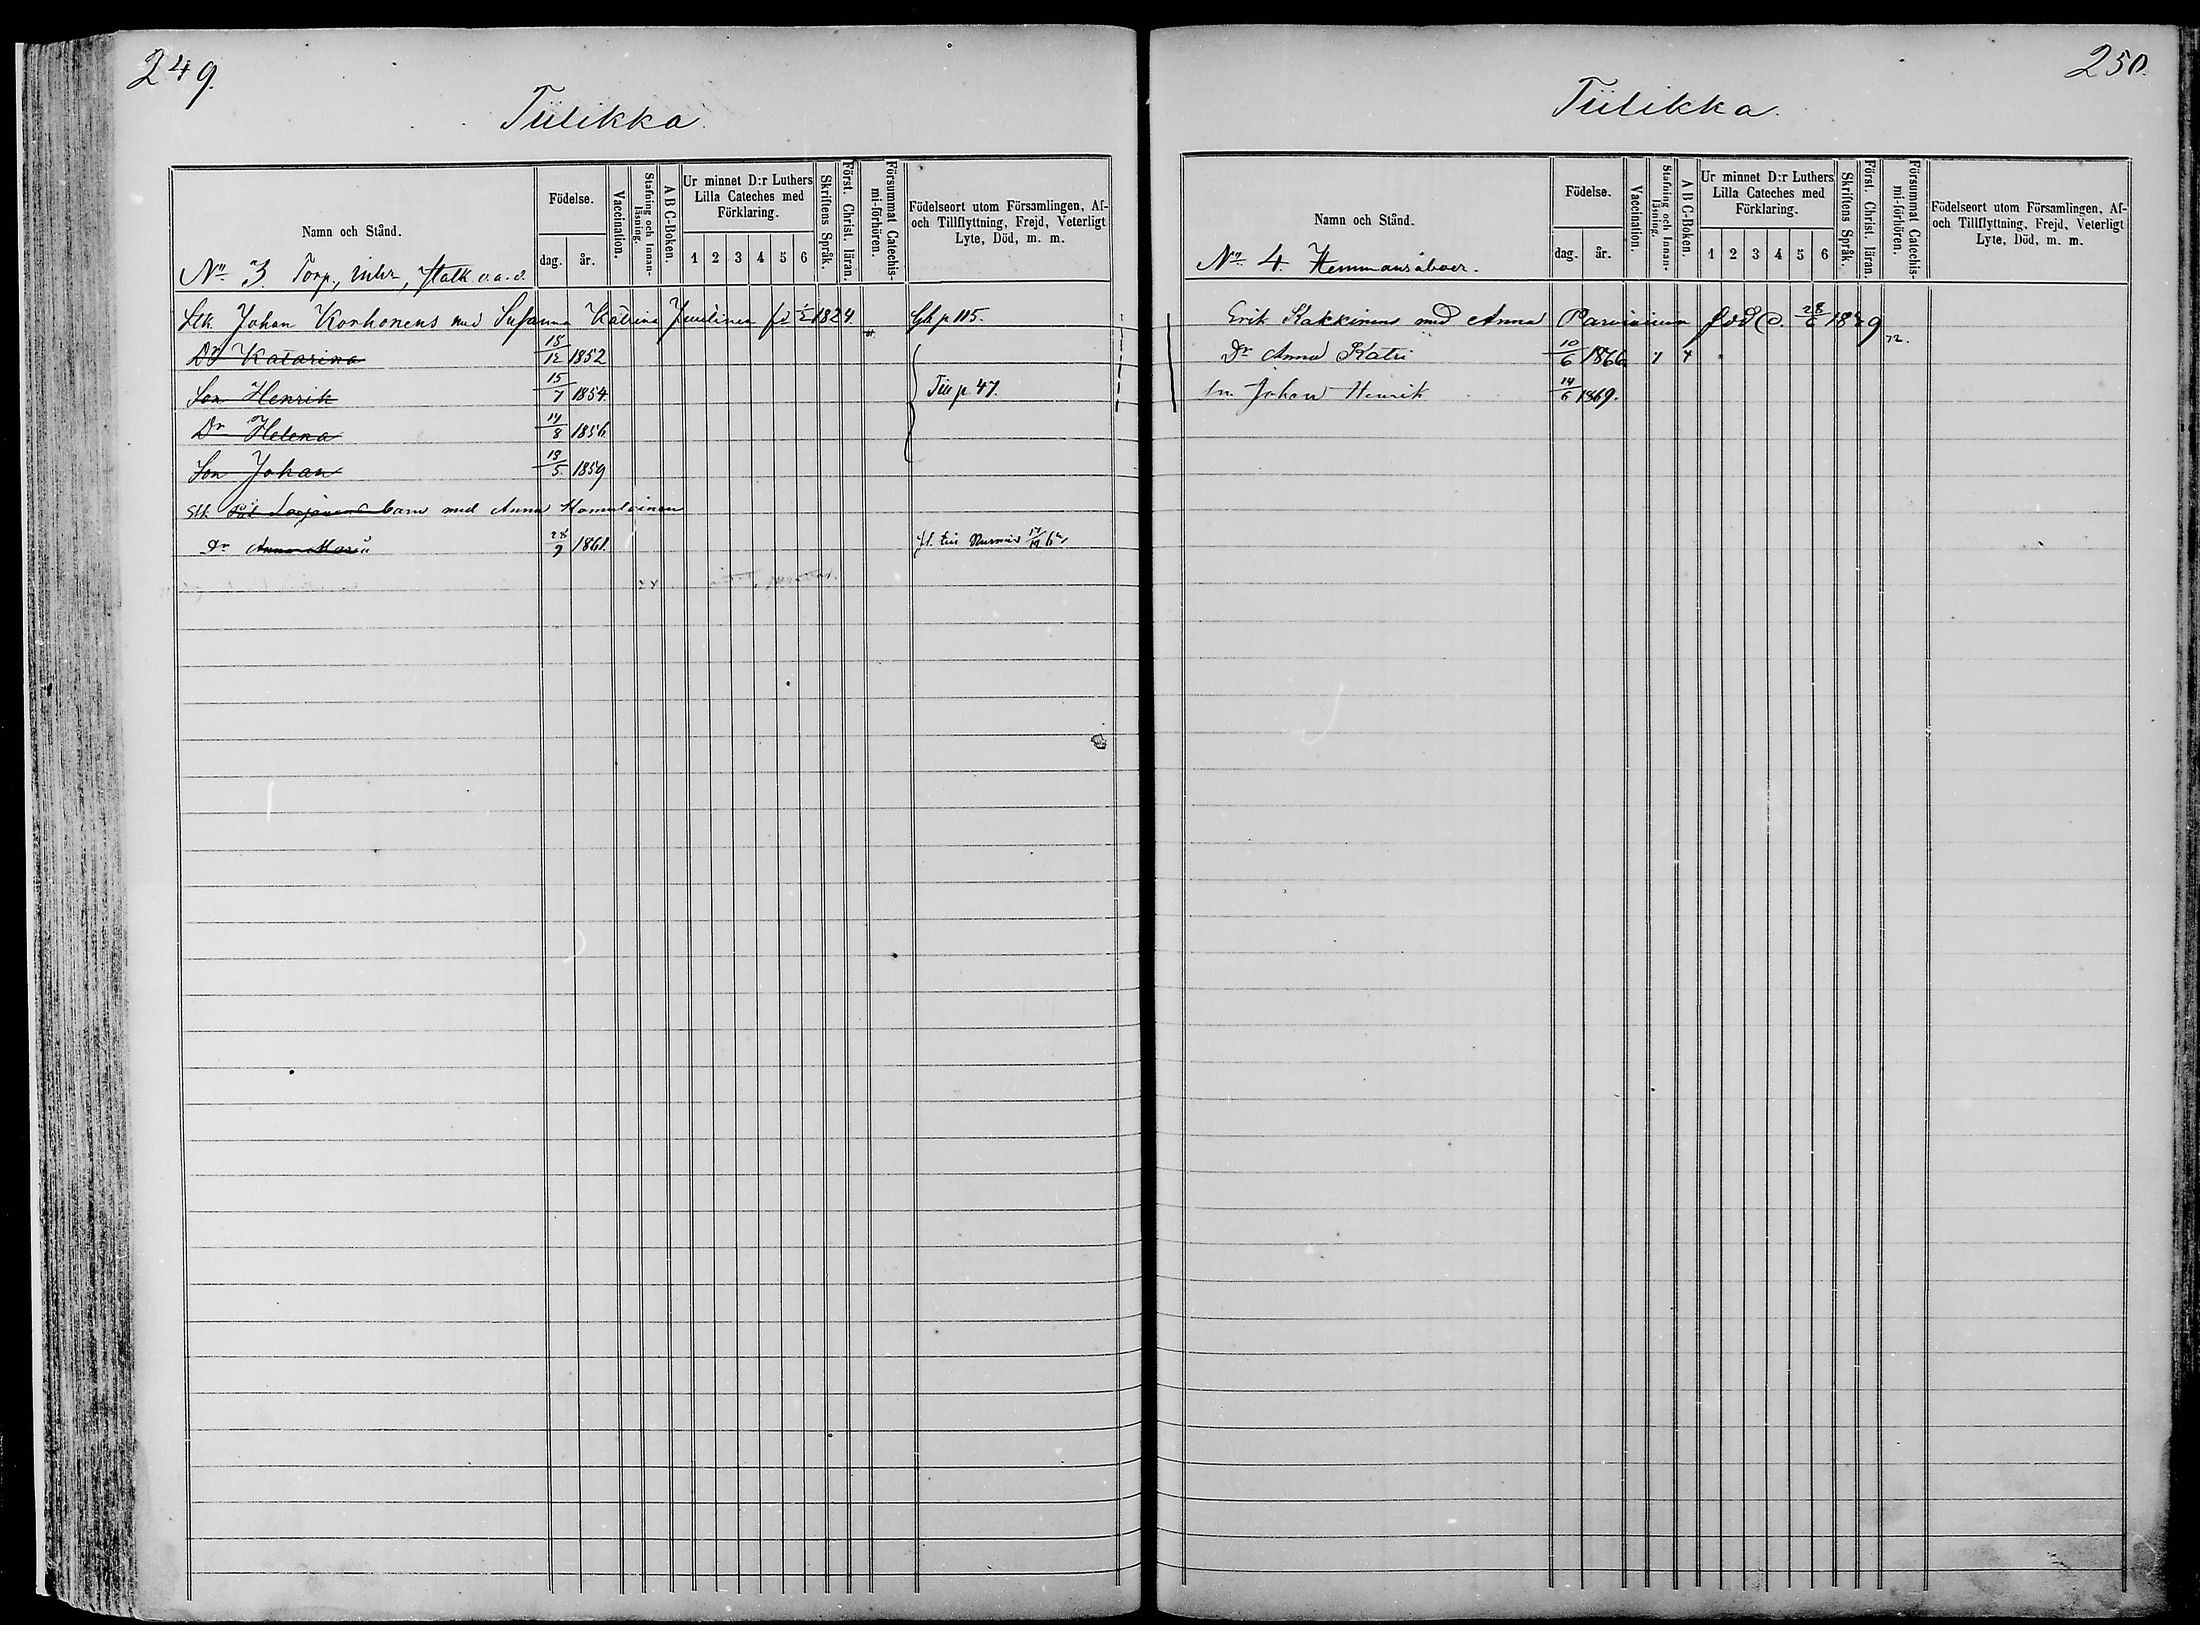 249.
Tiilikka.
Namn och Stånd.
Födelse.
dag.
år.
Vaccination.
Stafning och Innan-
läsning.
A B C-Boken.
Ur minnet D:r Luthers
Lilla Cateches med
Förklaring.
1 2 3 4 5 6
Skriftens Språk.
Först. Christ. läran.
Försummat Catechis-
mi-förhören.
Födelseort utom Församlingen, Af-
och Tillflyttning, Frejd, Veterligt
Lyte, Död, m. m.
No 3 Torp., inhr, Statk. o.a.d.
Stk. Johan Korhonens med Susanna Katrina 1824. Gh p 115.
Dr Katarina 15/12 1852
Son Henrik 15/7 1854 Tiis p. 47.
Dr Helena 14/8 1856
Son Johan 13/5 1859
Stk barn med Anna Komulainen
Dr Anna Maria 28/9 1861.
250.
Tiilikka.
Namn och Stånd.
Födelse.
dag.
år.
Vaccination.
Stafning och Innan-
läsning.
A B C-Boken.
Ur minnet D:r Luthers
Lilla Cateches med
Förklaring.
1 2 3 4 5 6
Skriftens Språk.
Först. Christ. läran.
Försummat Catechis-
mi-förhören.
Födelseort utom Församlingen, Af-
och Tillflyttning, Frejd, Veterligt
Lyte, Död, m. m.
No 4. Hemmansåboer.
Erik Kakkinens med Anna Parviainen född 28/6
Dr Anna Katri 10/6 1866
Sn. Johan Henrik 14/6 1869.